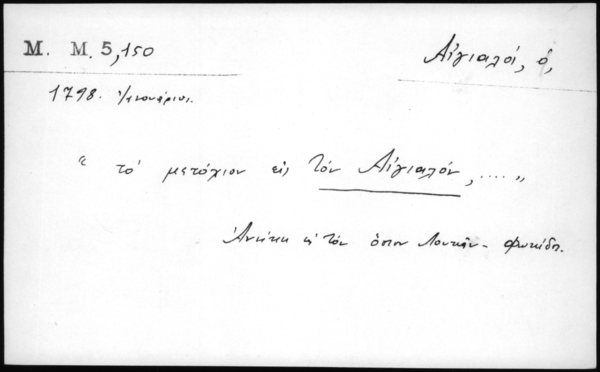 Μ. Μ. 5,150
Αἰγιαλός, ὁ,
1798. Ἰανουάριος.
“ τό μετόχιον εἰς τὸν Αἰγιαλόν, ..... ”
Ἀνήκει εἰς τὸν ὅσιον Λουκᾶν - Φωκίδος.